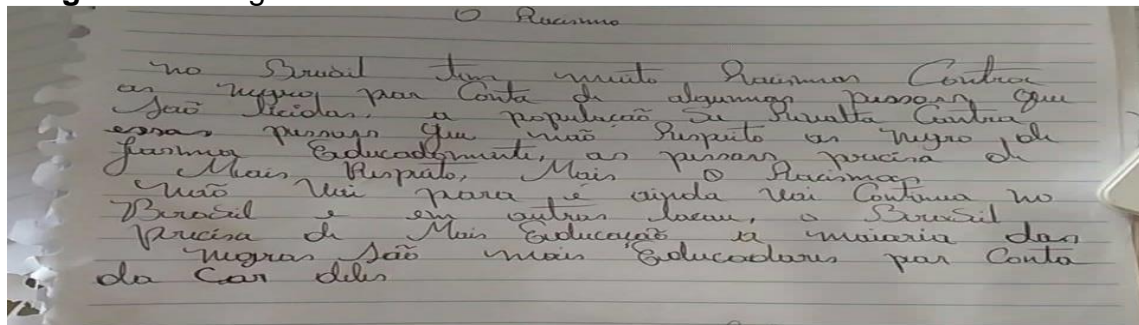 O Racismo
no Brasil tem muito Racismos Contra
os negro, por Conta de algumas pessoas que
são a população se Revolta Contra
essas pessoas que não Respeito os negro de
forma Educadamente, as pessoas precisa de
Mais Respeito, Mais o Racismos
não Vai para é ainda Vai Continua no
Brasil e em outros locau, o Brasil
Precisa de Mais Educação a maioria dos
negros são mais Educadores por Conta
da Cor deles